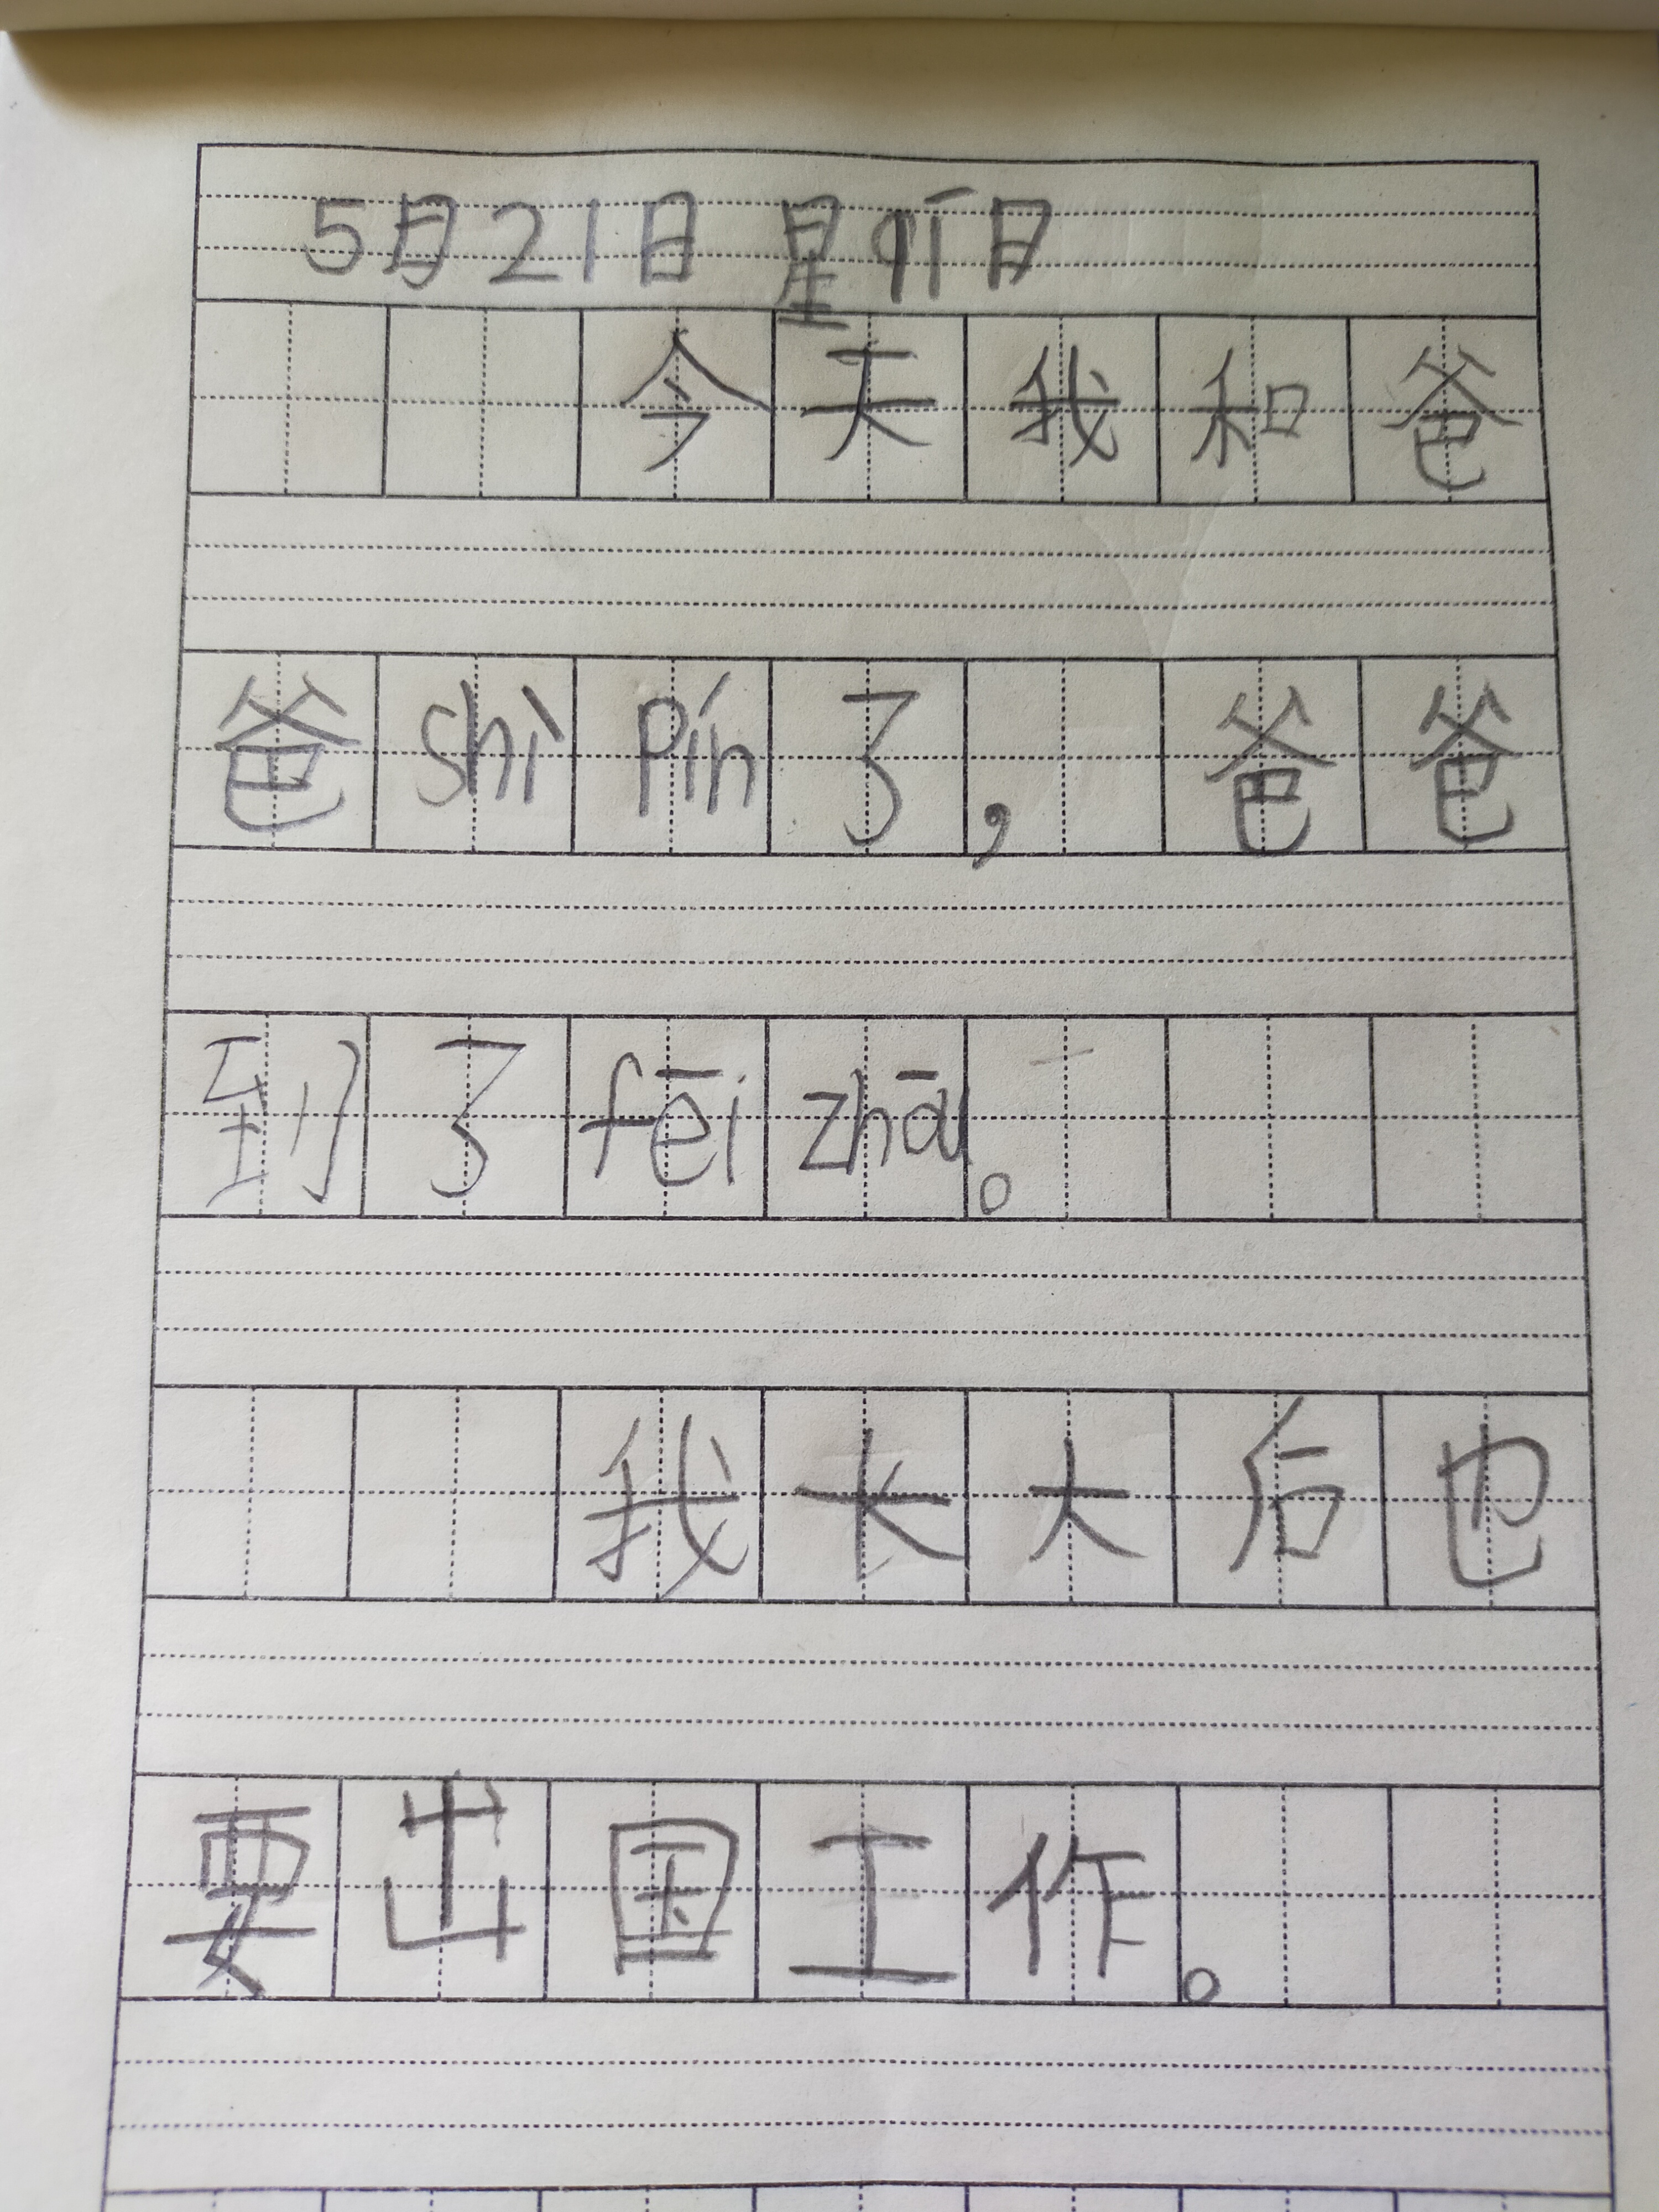 5月21日 星qī日
今天我和爸
爸shì pín了，爸爸
到了fēi zhā。
我长大后也
要出国工作。